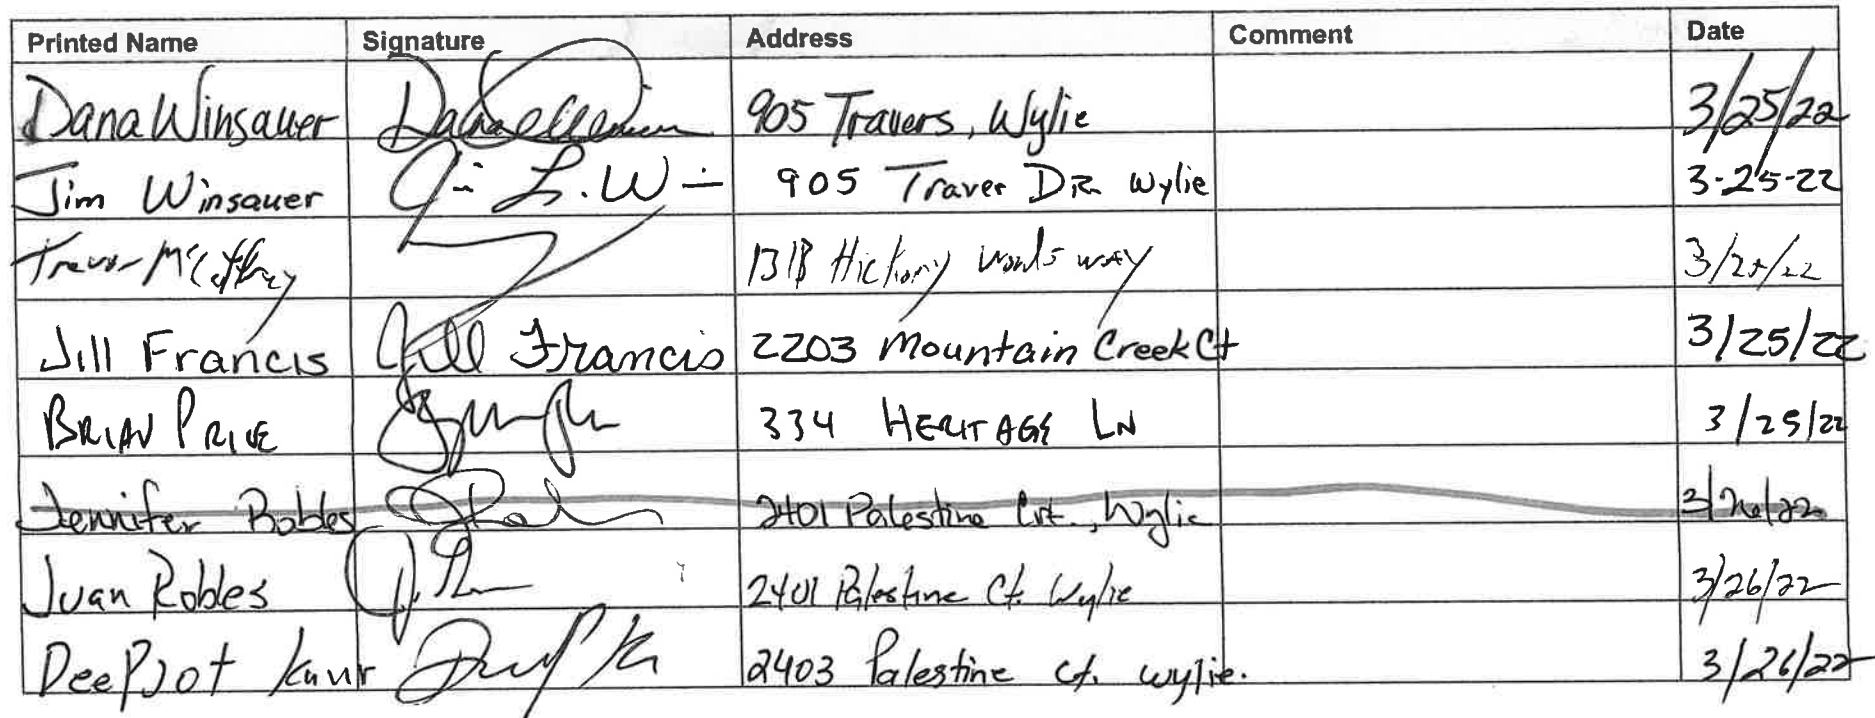 Printed Name Signature Address Comment Date
Dana Winsauer 905 Travers, Wylie 3/25/22
Jim Winsauer Ji L. W 905 Traver DR. Wylie 3-25-22
Trevor McCaffrey 1318 Hickory woods way 3/25/22
Jill Francis Jill Francis 2203 Mountain Creek Ct 3/25/22
BRIAN PRICE 334 HERITAGE LN 3/25/22
Jennifer Robles 2401 Palestine Crt., Wylie 3/26/22
Juan Robles 2401 Palestine Ct. Wylie 3/26/22
DeepJot Kaur 2403 Palestine Ct. Wylie. 3/26/22